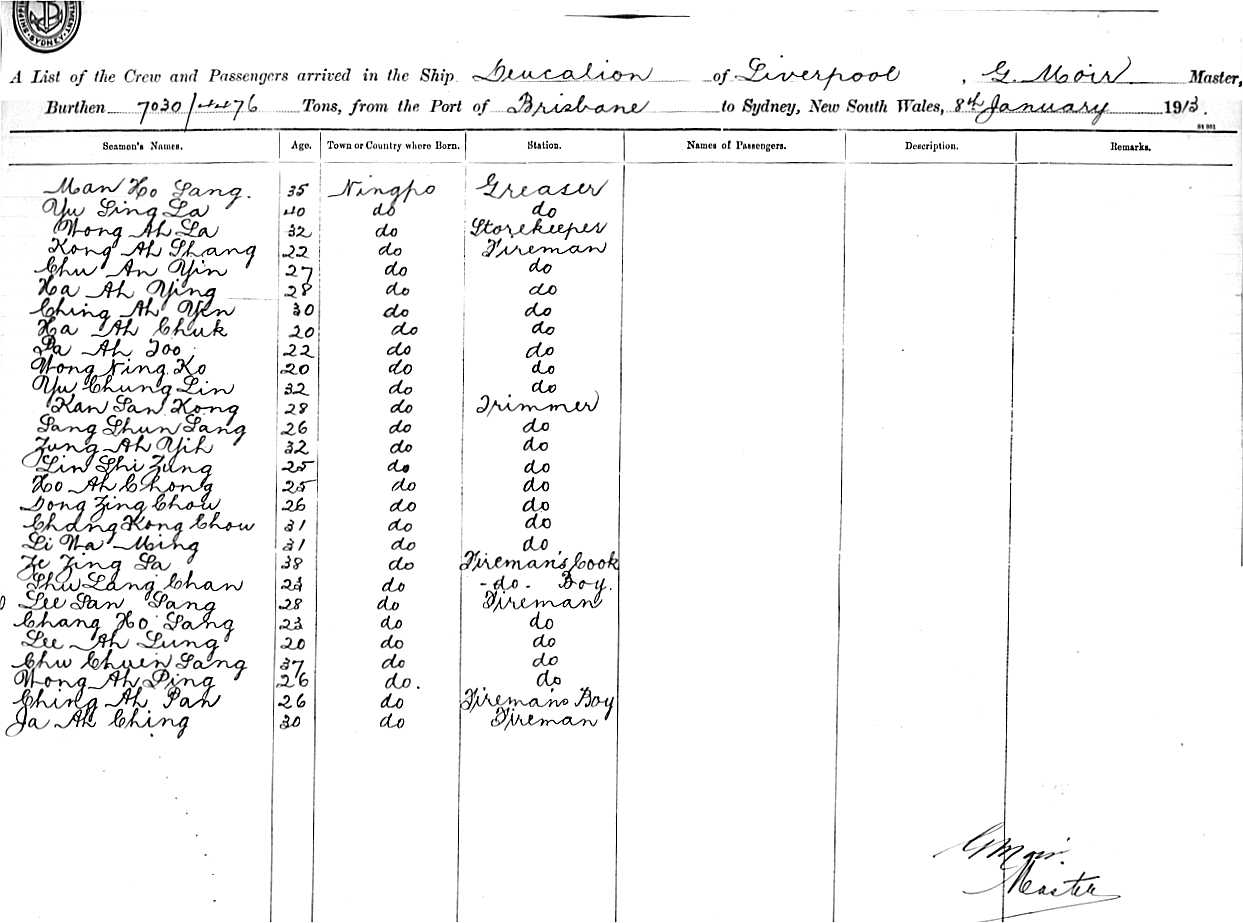 SHIPPING SYDNEY
A List of the Crew and Passengers arrived in the Ship Deucalion of Liverpool, G. Moir Master,
Burthen 7030/4476 Tons, from the Port of Brisbane to Sydney, New South Wales, 8th January 1913.
Seamen's Names. Age. Town or Country where Born. Station. Names of Passengers. Description. Remarks.
Man Ho Sang. 35 Ningpo Greaser
Yu Sing La 40 do do
Wong Ah La 32 do Storekeeper
Kong Ah Shang 22 do Fireman
Chu An Yin 27 do do
Ha Ah Ying 28 do do
Ching Ah Yen 30 do do
Ha Ah Chuk 20 do do
Pa Ah Foo 22 do do
Wong Ning Ko 20 do do
Yu Chung Lin 32 do do
Kan San Kong 28 do Trimmer
Sang Shun Sang 26 do do
Zung Ah Yih 32 do do
Lin Shi Zung 25 do do
Ho Ah Chong 25 do do
Dong Zing Chou 26 do do
Chang Kong Chou 31 do do
Li Wa Ming 31 do do
Ze Zing Sa 38 do Fireman's Cook
Shu Lang Chan 23 do -do- Boy.
Lee San Sang 28 do Fireman
Chang Ho Sang 23 do do
Lee Ah Lung 20 do do
Chu Chuen Sang 37 do do
Wong Ah Ping 26 do. do
Ching Ah Pan 26 do Firemans Boy
Ja Ah Ching 30 do Fireman
G Moir.
Master